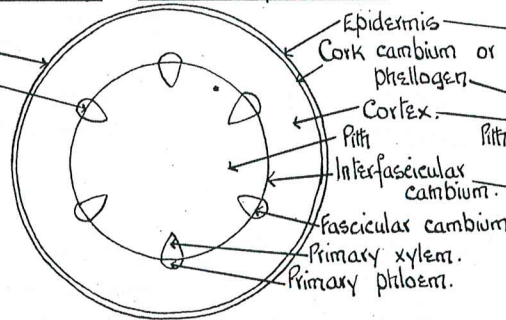 Epidermis
Cork cambium or
phellogen.
Cortex.
Pith
Pith
Interfascicular
cambium.
Fascicular cambium
Primary xylem.
Primary phloem.